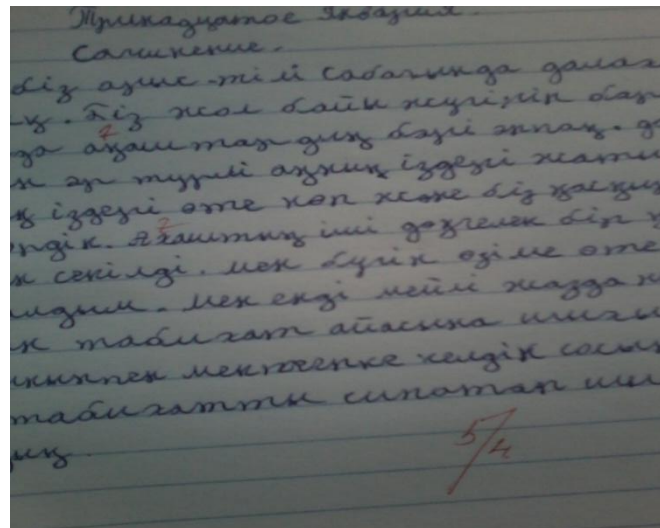 Тринадцатое января.
Сочинение.
біз ашық тілі сабағында далаға
қ. Біз жол бойы жүгіріп бар
да ағаштардың бәрі аппақ. д
н әр түрлі аңның іздері жаты
ң іздері өте көп және біз қасқыр
рдік. Ағаштың іші дөңгелек бір ү
к секілді. мен бүгін өзіме өте
лдым. мен енді мейлі жазда
к табиғат аясына шығы
мектепке келдік сосын
табиғатты сипатап
дық.
5/4